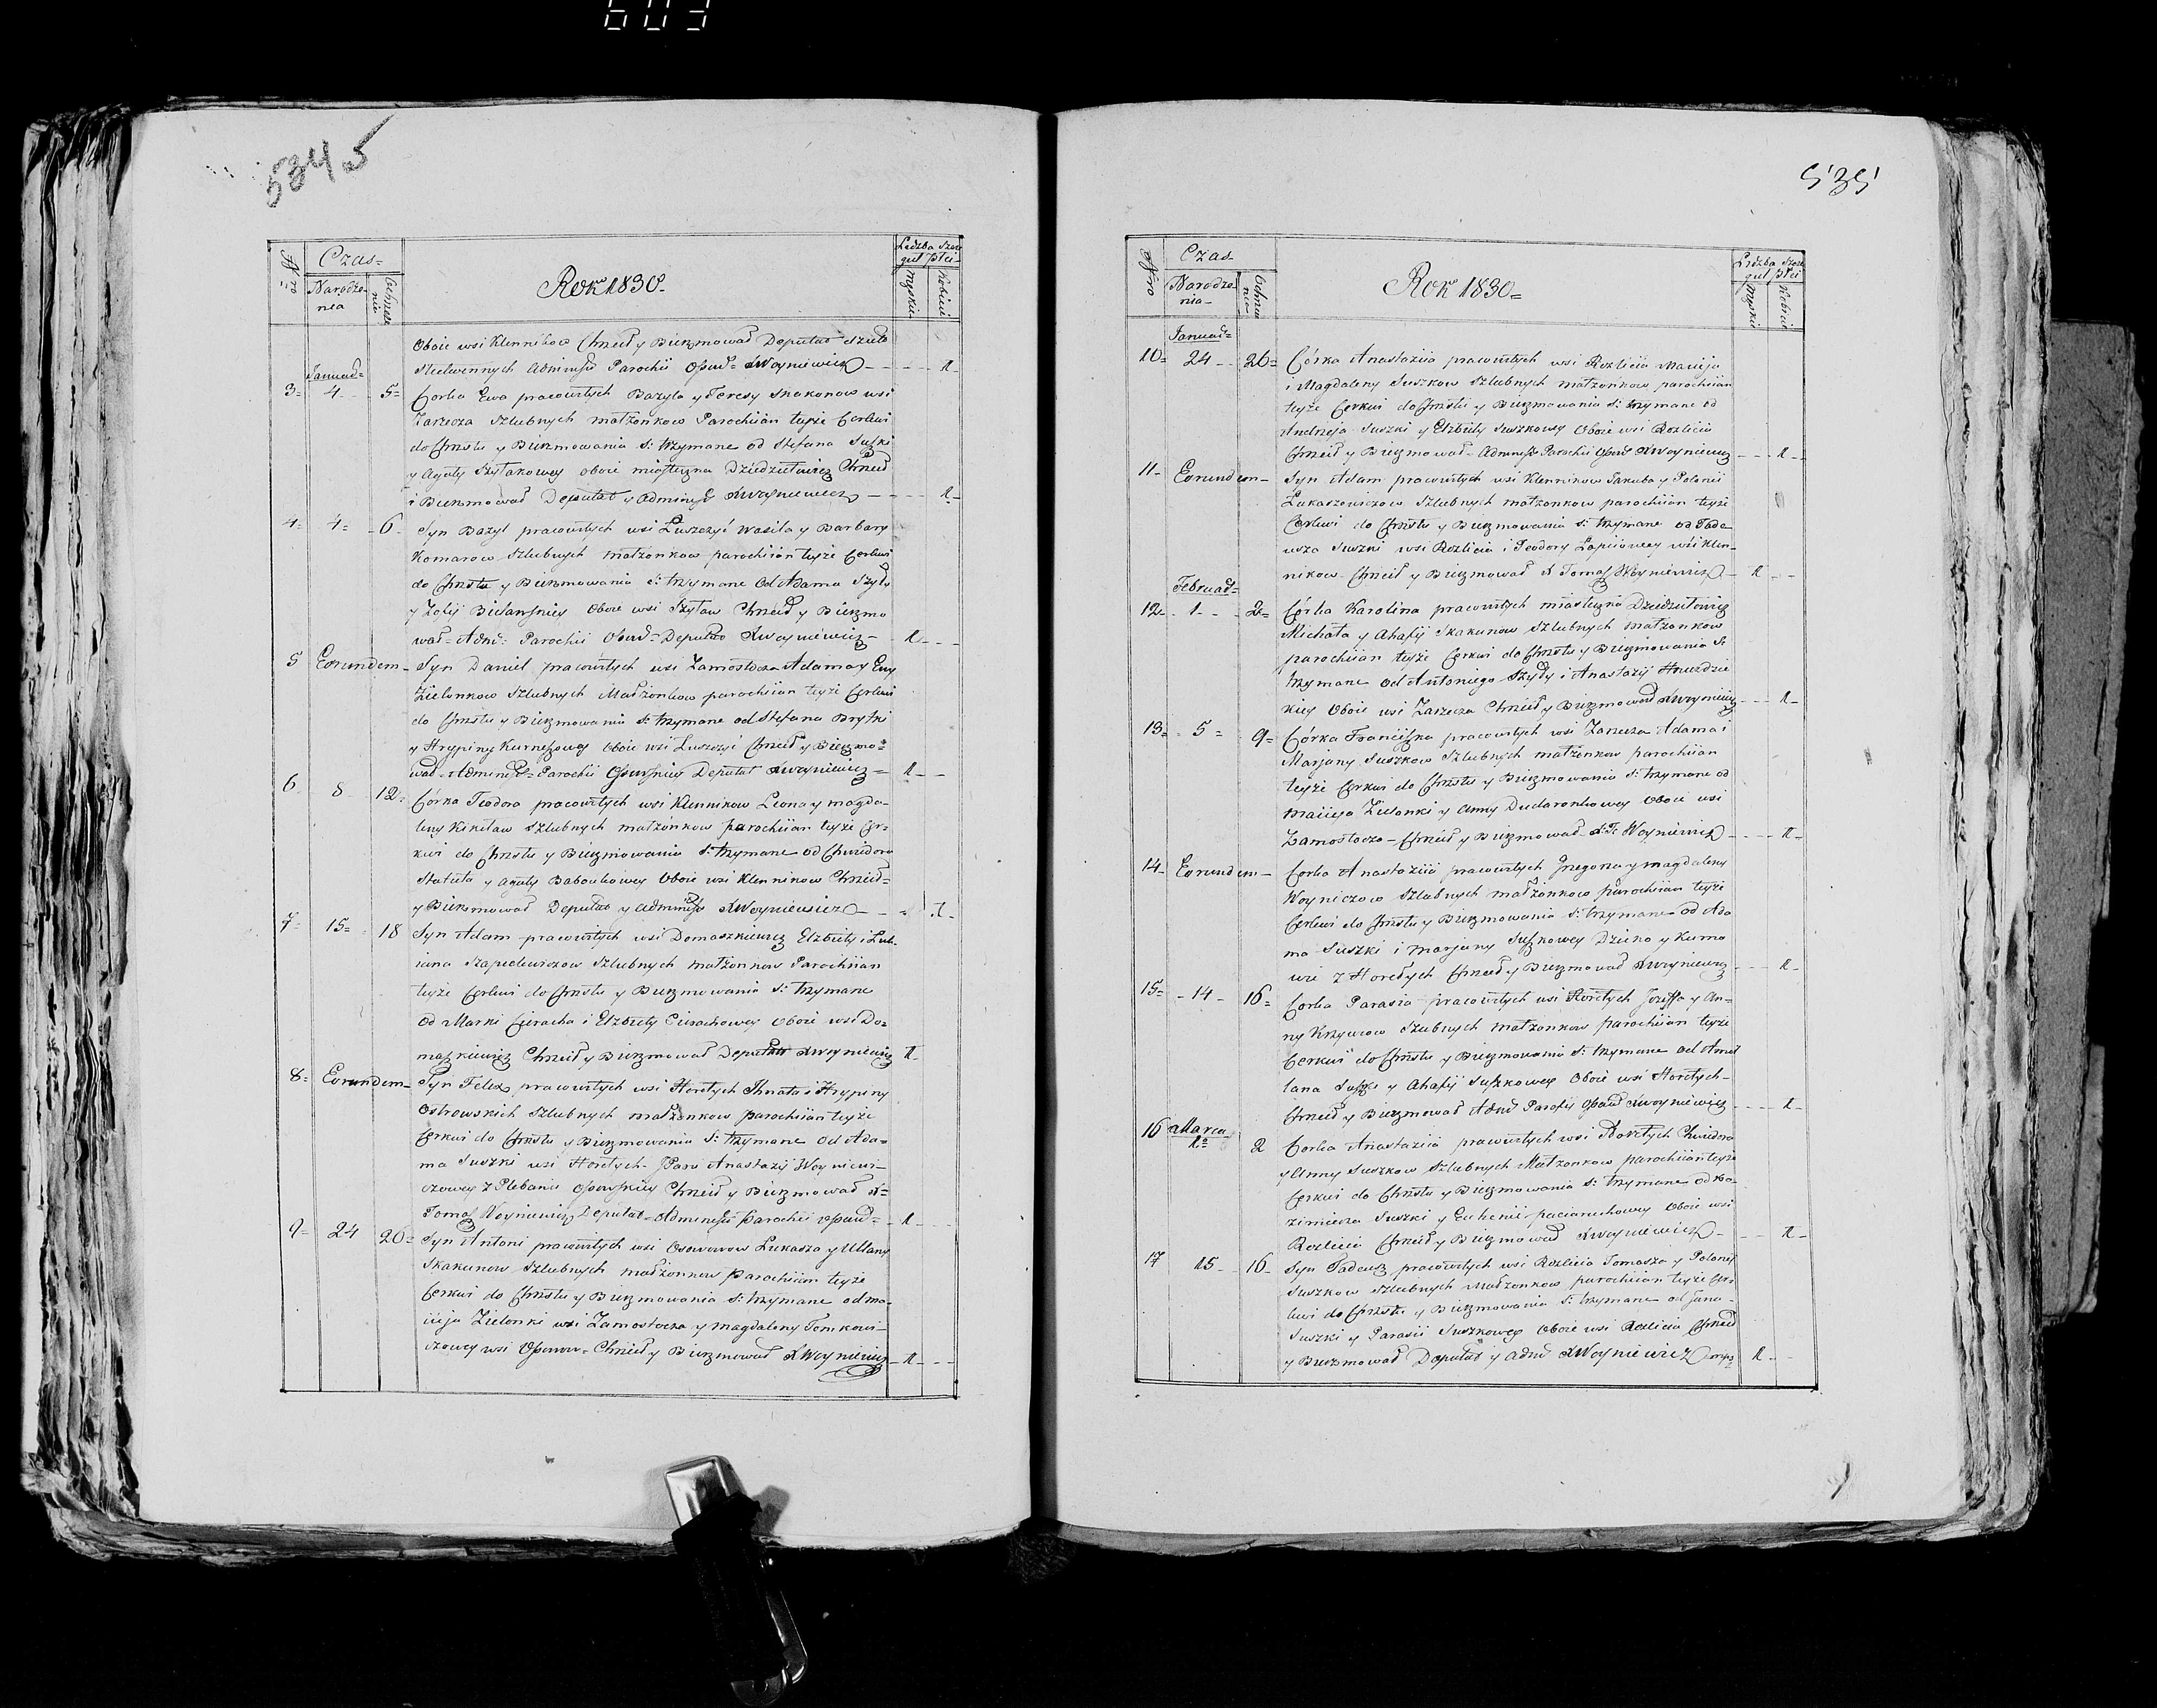 603
5345
Nro
Czas=
Narodze=
nia
Ochrzcze
nia
Rok 1830.
Liczba Szcze
gul płci
Męskie
Kobiece
Oboie wsi Klennikow Chrzcił y Bierzmował Deputat
Parochii Woyniewicz - 1 -
Januar=
3= 4 - 5= Corka Ewa pracowitych Bazyla y Teresy Skakunow wsi
Zarzecza Szlubnych małżonkow Parochiian teyże Cerkwi
do Chrztu y Bierzmowania S: trzymane od Stefana Suszki
y Agaty Szylakowey oboie miasteczna Dziedziewicz Chrzcił
i Bierzmował Deputat y Adminstr X Woyniewicz - 1 -
4= 4= 6 Syn Bazyl pracowitych wsi Łuszczyć Wasila y Barbary
Komarow Szlubnych małżonkow parochiian teyże Cerkwi
do Chrztu y Bierzmowania S: trzymane od Adama Szyły
y Zofij oboie wsi Chrzcił y Bierzmo
wał = Parochii Deputat X Woyniewicz - 1 -
5 Eorundem - Syn Daniel pracowitych wsi Zamostocza Adama y Ewy
Zielonkow Szlubnych Małżonkow parochiian teyże Cerkwi
do Chrztu y Bierzmowania S: trzymane od Stefana
y Hrypiny oboie wsi Łuszczyć Chrzcił y Bierzmo=
wał = Parochii Deputat X Woyniewicz = 1 -
6 8 12= Córka Teodora pracowitych wsi Klennikow Leona y Magda=
leny Szlubnych małżonkow parochiian teyże Cer=
kwi do Chrztu y Bierzmowania S: trzymane od Chwidora
y Agaty Babonkowey Oboie wsi Klennikow Chrzcił=
y Bierzmował Deputat y Adminstr X Woyniewicz - 1 -
7= 15= 18 Syn Adam pracowitych wsi Domaszkiewicz Elżbiety i
Szlubnych małżonkow Parochiian
teyże Cerkwi do Chrztu y Bierzmowania S: trzymane
od Marki Cieracha i Elżbiety Cierachowey Oboie wsi Do=
maszkiewicz Chrzcił y Bierzmował Deputat X Woyniewicz 1 -
8= Eorundem - Syn Felix pracowitych wsi Horełych Ihnata i Hrypiny
Ostrowskich Szlubnych małżonkow parochiian teyże
Cerkwi do Chrztu y Bierzmowania S: trzymane od Ada=
ma Suszki wsi Horełych Pani Anastazij Woyniewi=
czowey z Plebanii Chrzcił y Bierzmował X=
Tomasz Woyniewicz Deputat - Parochii - 1 -
9= 24 26= Syn Antoni pracowitych wsi Łukasza y Ullany
Skakunow Szlubnych małżonkow Parochiian teyże
Cerkwi do Chrztu y Bierzmowania S: trzymane od Ma=
cieja Zielonki wsi Zamostocza y Magdaleny Tomkowi=
czowey wsi Chrzcił y Bierzmował X Woyniewicz - 1 -
535
Nro
Czas
Narodze=
nia -
Ochrzcze
nia
Rok 1830=
Liczba Szcze
gul płci
Męskie
Kobiece
Januar=
10= 24 - 26= Córka Anastaziia pracowitych wsi Rozlicia Macieja
i Magdaleny Suszkow Szlubnych małżonkow parochiian
teyże Cerkwi do Chrztu y Bierzmowania S: trzymane od
Andrzeja Suszki y Elżbiety Suszkowey Oboie wsi Rozlicia
Chrzcił y Bierzmował Parochii X Woyniewicz - 1 -
11 - Eorundem - Syn Adam pracowitych wsi Klennikow Jakuba y Polonii
Łukaszewiczow Szlubnych małżonkow parochiian teyże
Cerkwi do Chrztu y Bierzmowania S: trzymane od Tade
usza Suszki wsi Rozlicia i Teodory wsi Klen=
nikow Chrzcił y Bierzmował X Tomasz Woyniewicz - 1 -
Februar=
12= 1 - 2= Córka Karolina pracowitych miasteczna
Michała y Ahafij Skakunow Szlubnych małżonkow
parochiian teyże Cerkwi do Chrztu y Bierzmowania S:
trzymane od Antoniego Szyły i Anastazij
kiey Oboie wsi Zarzecza Chrzcił y Bierzmował X Woyniewicz - 1 -
13= 5= 9= Córka Franciszka pracowitych wsi Zarzecza Adama i
Marjany Suszkow Szlubnych małżonkow parochiian
teyże Cerkwi do Chrztu y Bierzmowania S: trzymane od
Macieja Zielonki y Anny Dudaronkowey Oboie wsi
Zamostocza - Chrzcił y Bierzmował X: T: Woyniewicz - 1 -
14 - Eorundem - Corka Anastaziia pracowitych Grzegorza y Magdaleny
Woyniczow Szlubnych małżonkow parochiian teyże
Cerkwi do Chrztu y Bierzmowania S: trzymane od Ada
ma Suszki i Marjany Suszkowey y
z Horełych Chrzcił y Bierzmował X Woyniewicz - 1 -
15= 14 - 16= Corka Parasia pracowitych wsi Horełych Jozeffa y An=
ny Krzywcow Szlubnych małżonkow parochiian teyże
Cerkwi do Chrztu y Bierzmowania S: trzymane od
Suszki y Ahafij Suszkowey Oboie wsi Horełych -
Chrzcił y Bierzmował X Woyniewicz - 1 -
16 Marca
1= 2 Corka Anastaziia pracowitych wsi Horełych Chwidora
y Anny Suszkow Szlubnych Małżonkow parochiian teyże
Cerkwi do Chrztu y Bierzmowania S: trzymane od Ka=
zimierza Suszki y Euhenii Oboie wsi
Rozlicia Chrzcił y Bierzmował X Woyniewicz - 1 -
17 15 - 16 - Syn Tadeusz pracowitych wsi Rozlicia Tomasza y Polonij
Suszkow Szlubnych Małżonkow parochiian teyże Cer=
kwi do Chrztu y Bierzmowania S: trzymane od Jana -
Suszki y Parasii Suszkowey Oboie wsi Rozlicia Chrzcił
y Bierzmował Deputat y X Woyniewicz mp 1 -